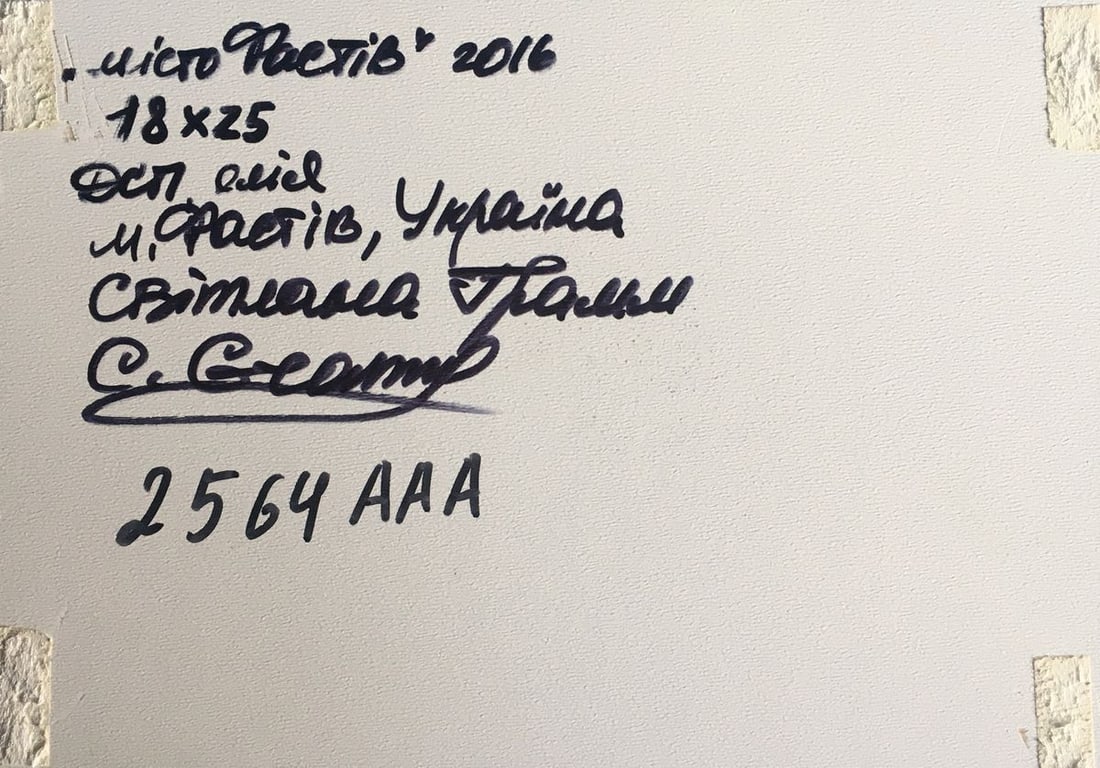 „місто Фастів" 2016
18x25
ДСП, олія
м, Фастів, Україна
Світлана
С.
2564 AAA